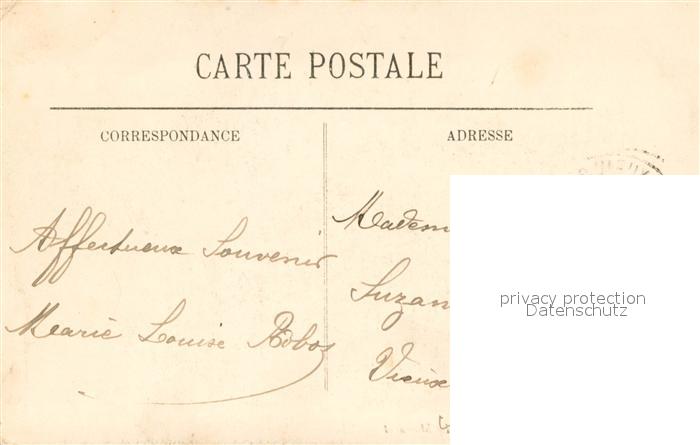 CARTE POSTALE
CORRESPONDANCE
ADRESSE
Affectueux Souvenir
Marie Louise
Madem
Suzan
Vieux
privacy protection
Datenschutz